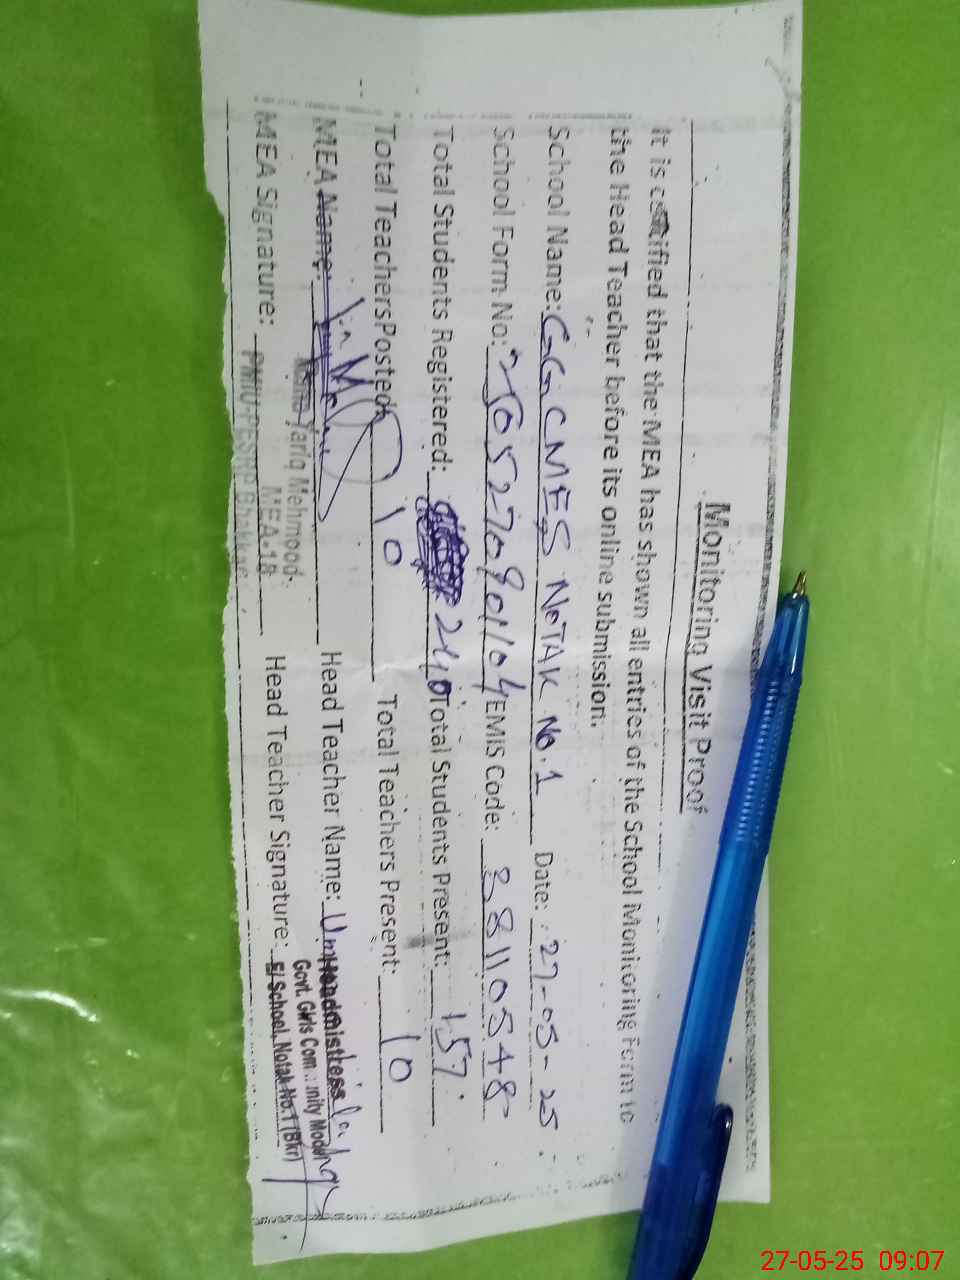 Monitoring Visit Proof
It is certified that the MEA has shown all entries of the School Monitoring Form to
the Head Teacher before its online submission.
School Name: GGCMES NOTAK No.1 Date: 27-05-25
School Form No: EMIS Code: 38110548
Total Students Registered: 240 Total Students Present: 157
Total Teachers Posted: 10 Total Teachers Present: 10
MEA Name: Head Teacher Name:
Tariq Mehmood Headmistress
MEA-18 Govt. Girls Community Model
MEA Signature: PMIU-PESRP Bhakkar Head Teacher Signature: El School, Notak No.1 (Bkr)
27-05-25 09:07